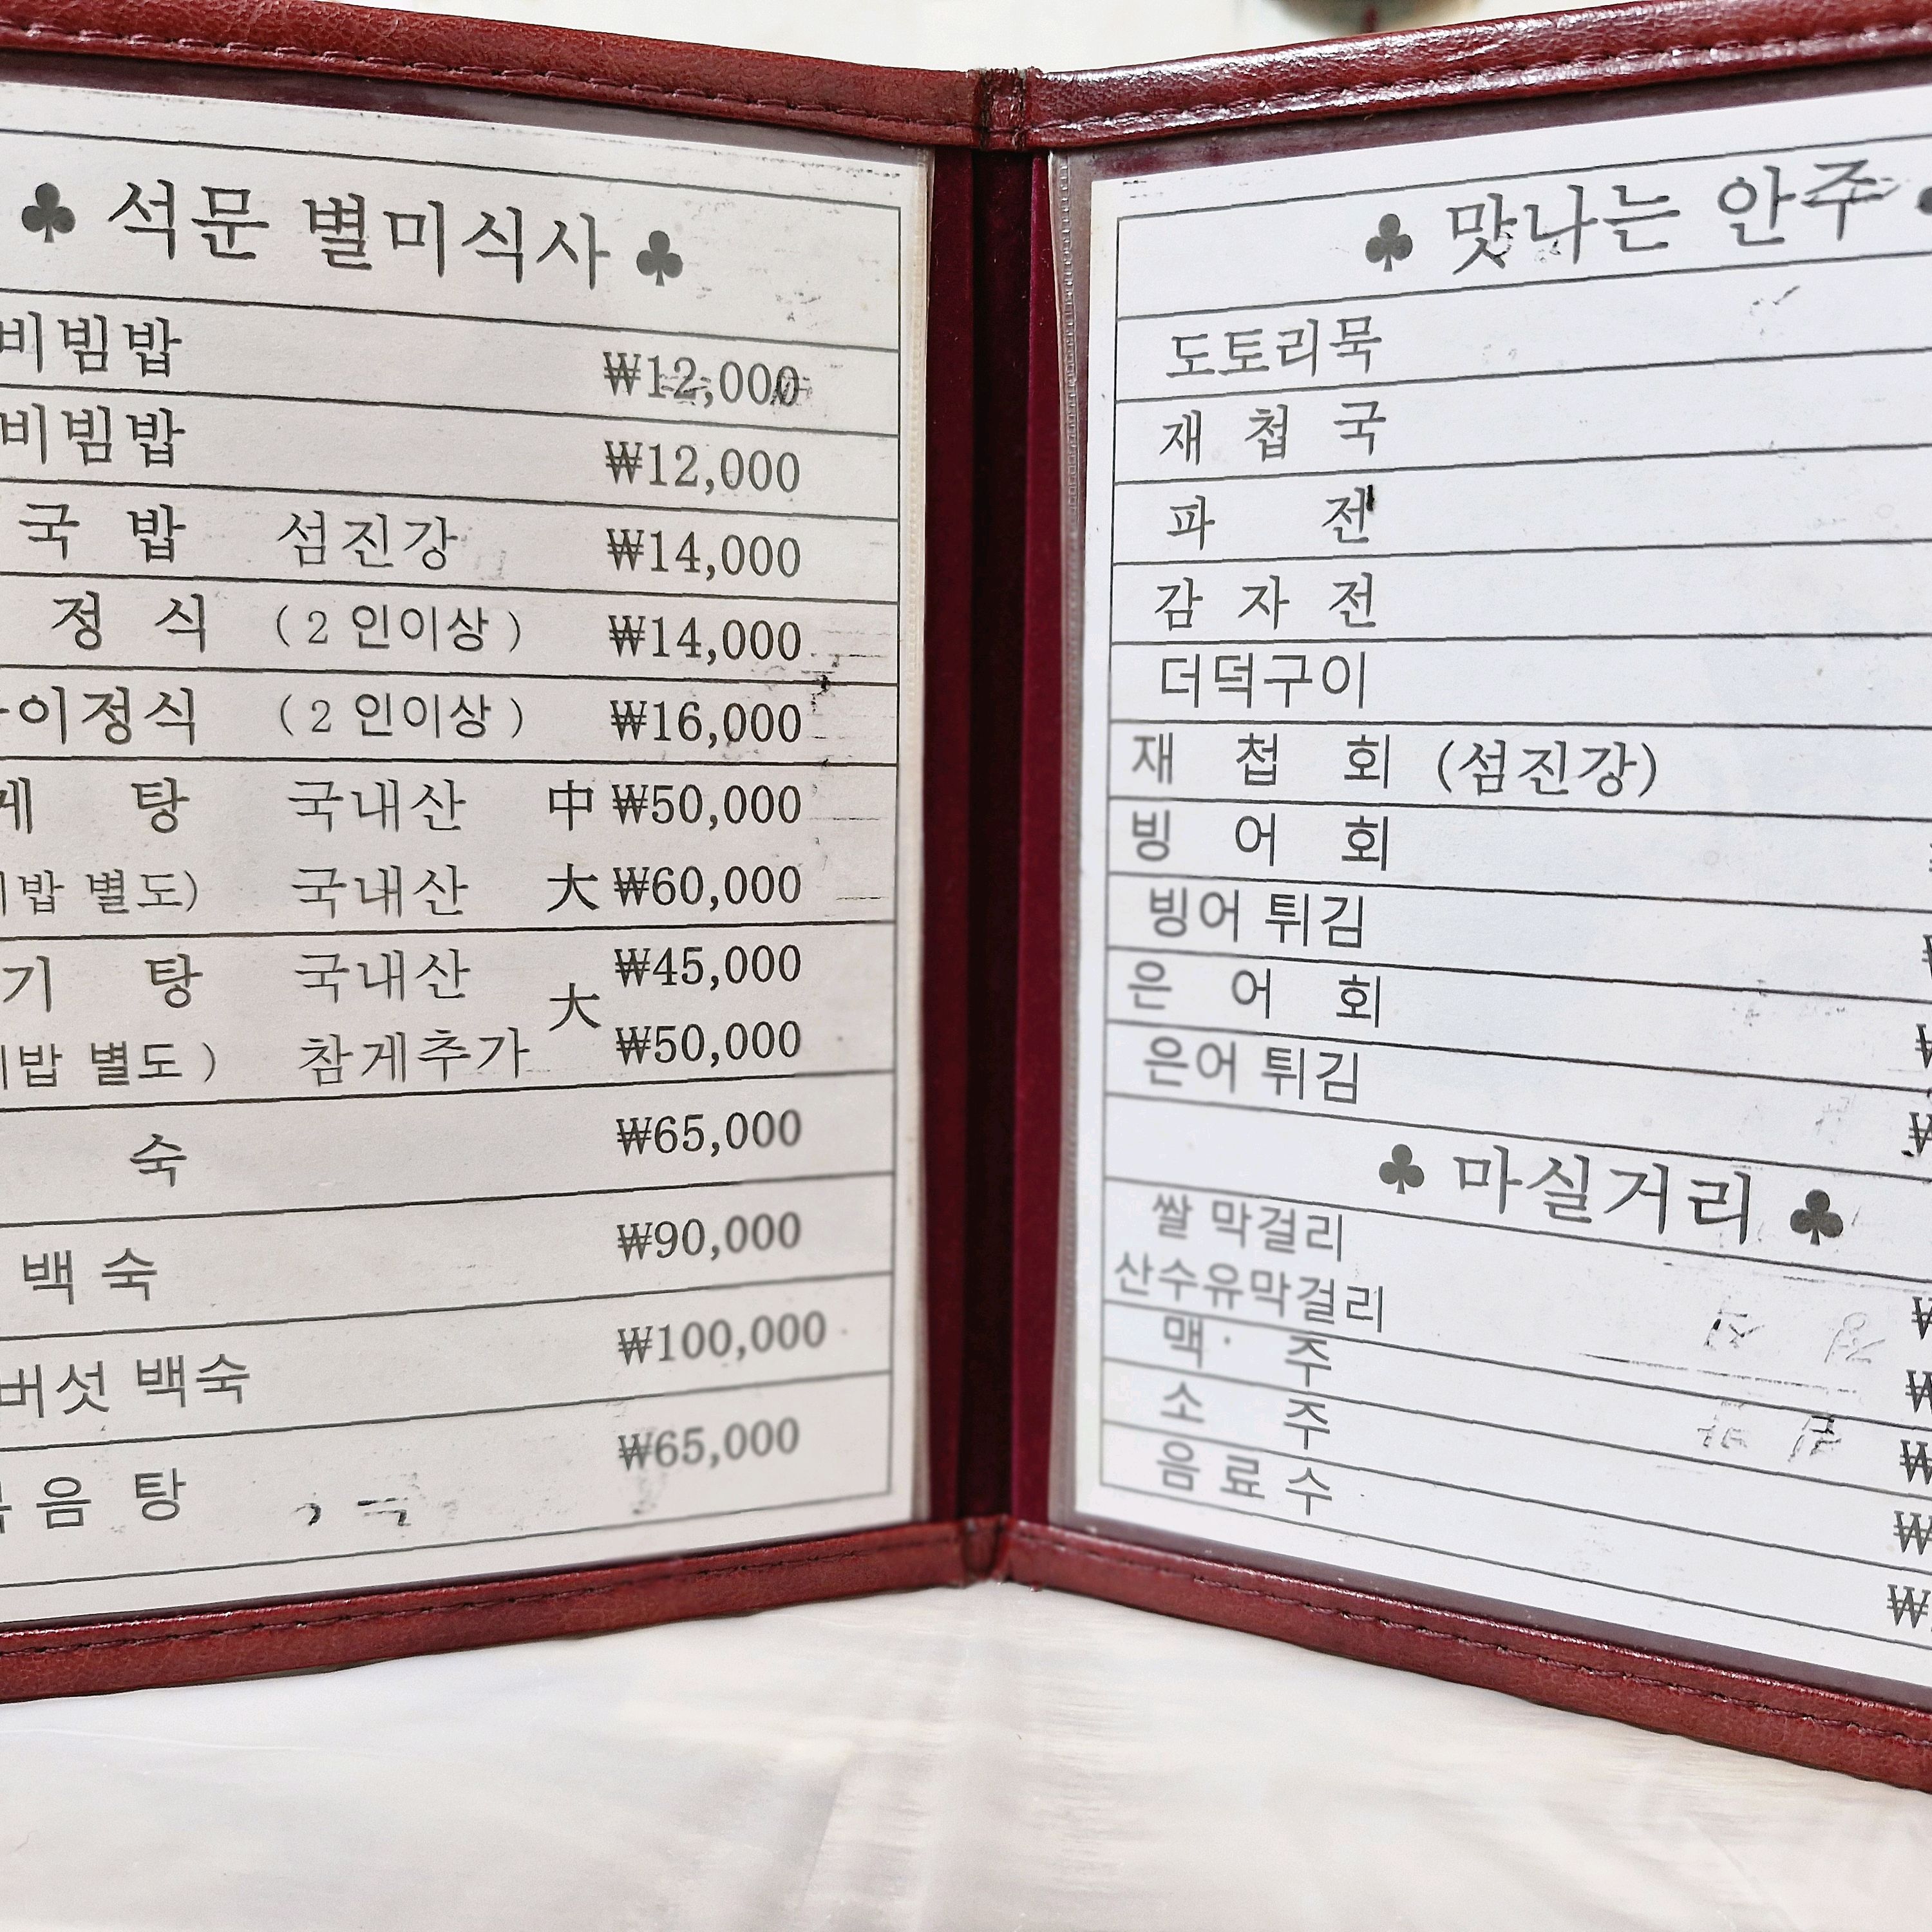 ♣ 석문 별미식사 ♣
비빔밥 ₩12,000
비빔밥 ₩12,000
국 밥 섬진강 ₩14,000
정 식 ( 2 인이상 ) ₩14,000
이정식 ( 2 인이상 ) ₩16,000
게 탕 국내산 中 ₩50,000
밥 별도) 국내산 大 ₩60,000
기 탕 국내산 大 ₩45,000
밥 별도 ) 참게추가 ₩50,000
숙 ₩65,000
백 숙 ₩90,000
버섯 백숙 ₩100,000
음 탕 ₩65,000
♣ 맛나는 안주
도토리묵
재 첩 국
파 전
감 자 전
더덕구이
재 첩 회 (섬진강)
빙 어 회
빙어 튀김
은 어 회
은어 튀김
♣ 마실거리 ♣
쌀 막걸리
산수유막걸리
맥 주
소 주
음 료 수